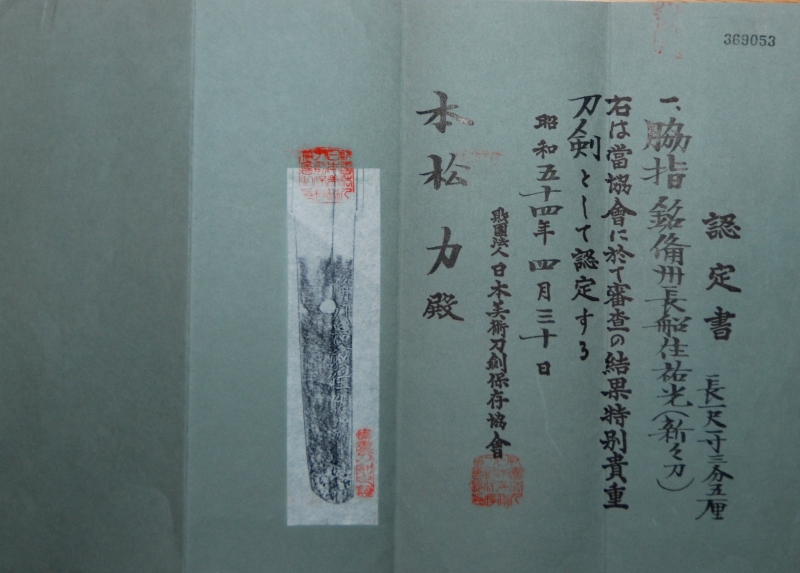 369053
認定書
一、脇指 銘備州長船住祐光(新々刀)
長一尺一寸三分五厘
右は當協會に於て審査の結果特別貴重
刀剣として認定する
昭和五十四年四月三十日
財團法人日本美術刀剣保存協會
木松力殿